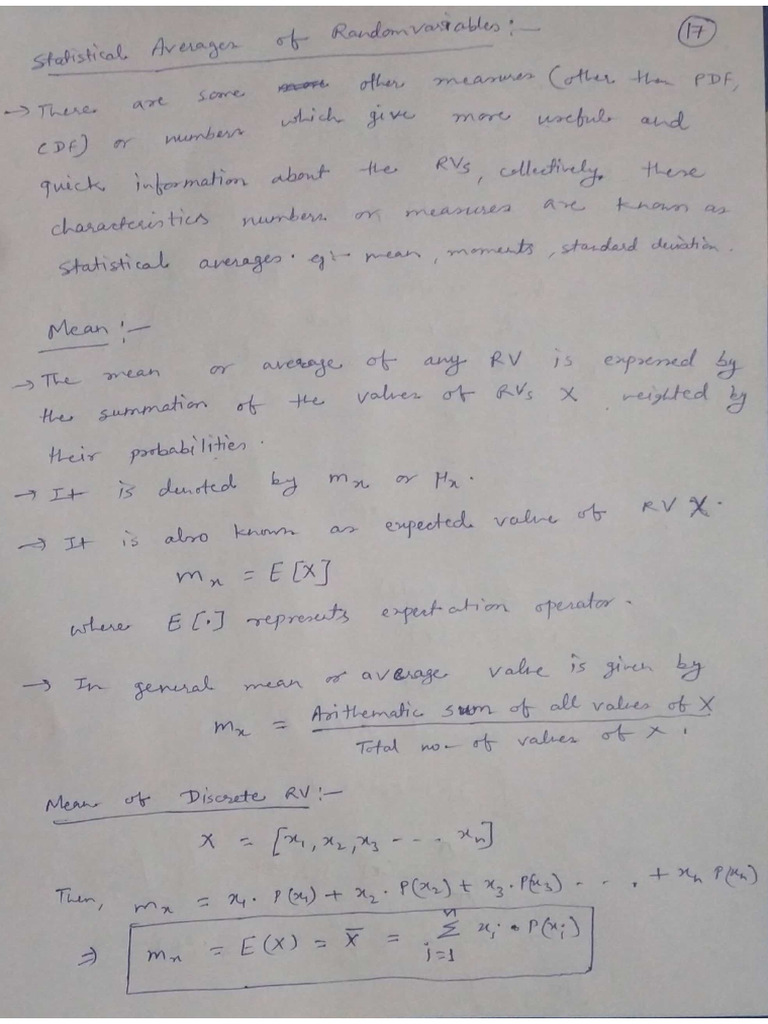 Statistical Averages of Random variables :-
17
→ There are some other measures (other than PDF,
CDF) or numbers which give more useful and
quick information about the RVs, collectively, these
characteristics numbers or measures are known as
statistical averages. eg:- mean, moments, standard deviation.
Mean :-
→ The mean or average of any RV is expressed by
the summation of the values of RVs X weighted by
their probabilities.
→ It is denoted by mx or μx.
→ It is also known as expected value of RV X.
mx = E[X]
where E[.] represents expectation operator.
→ In general mean or average value is given by
mx = Arithematic sum of all values of X
Total no- of values of X.
Mean of Discrete RV :-
X = [x1, x2, x3 ---- xn]
Then, mx = x1. P(x1) + x2. P(x2) + x3. P(x3) - - . . + xn P(xn)
⇒ mx = E(X) = X̄ = n Σ i=1 xi . P(xi)